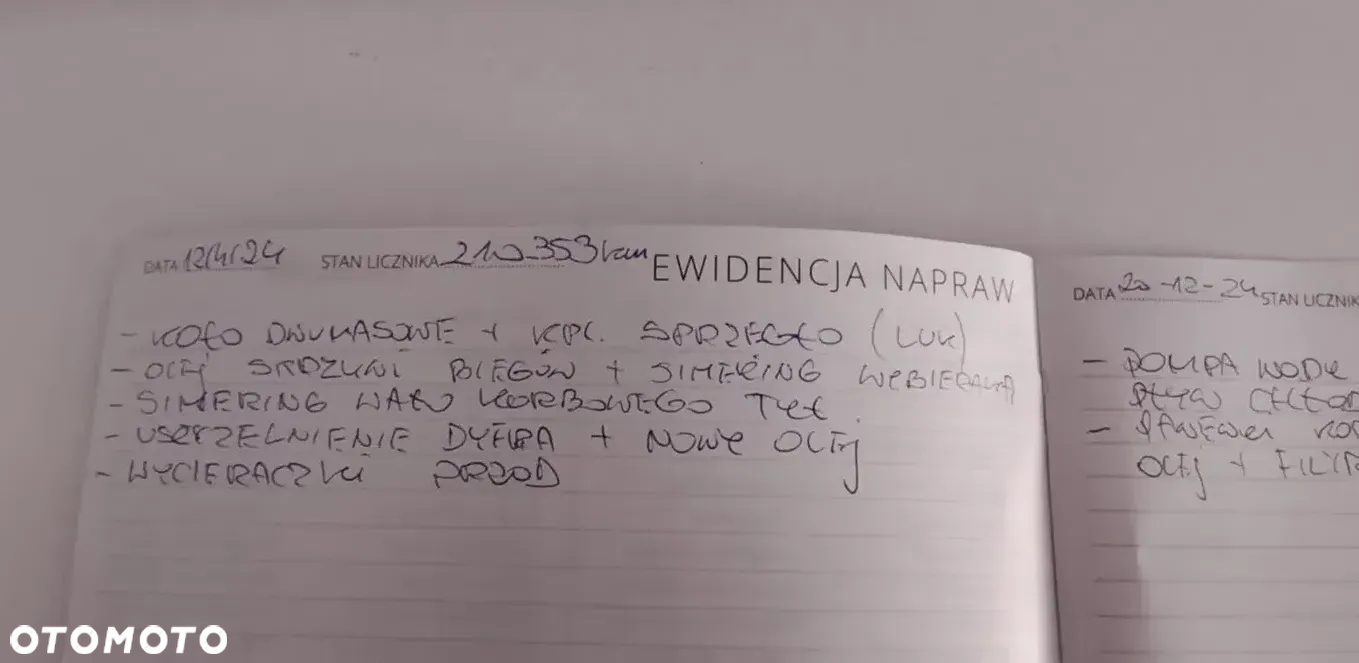 DATA 12/4/24 STAN LICZNIKA 210-353 km EWIDENCJA NAPRAW
- KOŁO DWUMASOWE + KPL. SPRZĘGŁO (LUK)
- OLEJ SKRZYNI BIEGÓW + SIMERING WYBIERAKA
- SIMERING WAŁU KORBOWEGO TYŁ.
- USZCZELNIENIE DYFRA + NOWY OLEJ
- WYCIERACZKI PRZÓD
DATA 20-12-24 STAN LICZNIK
- POMPA WODY
PŁYN CHŁOD
-
OLEJ + FILTR
OTOMOTO